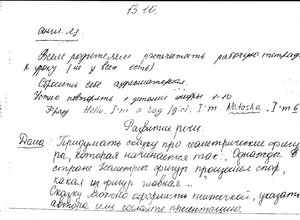 13.10.
англ. яз
Всем родителям распечатать рабочую тетрадь
к уроку (не у всех есть)
Сбросить себе аудиоматериал.
Устно повторить с детьми цифры 1-10
Фразу Hello, I'm a boy/girl, I'm Natasha, I'm 6
Развитие речи.
Дома: Придумать сказку про геометрические фигу
ра, которая начинается так: Однажды в
стране Геометрич. фигур произошел спор,
какая из фигур главная..."
Сказку можно оформить книжкой, указать
автора или сделайте презентацию.